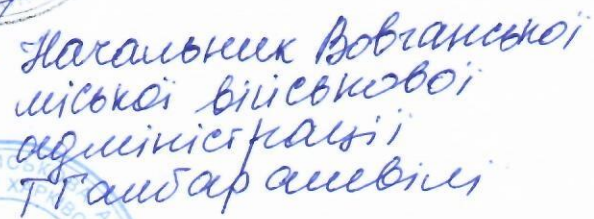 Начальник Вовчанської
міської військової
адміністрації
Т Гамбарашвілі